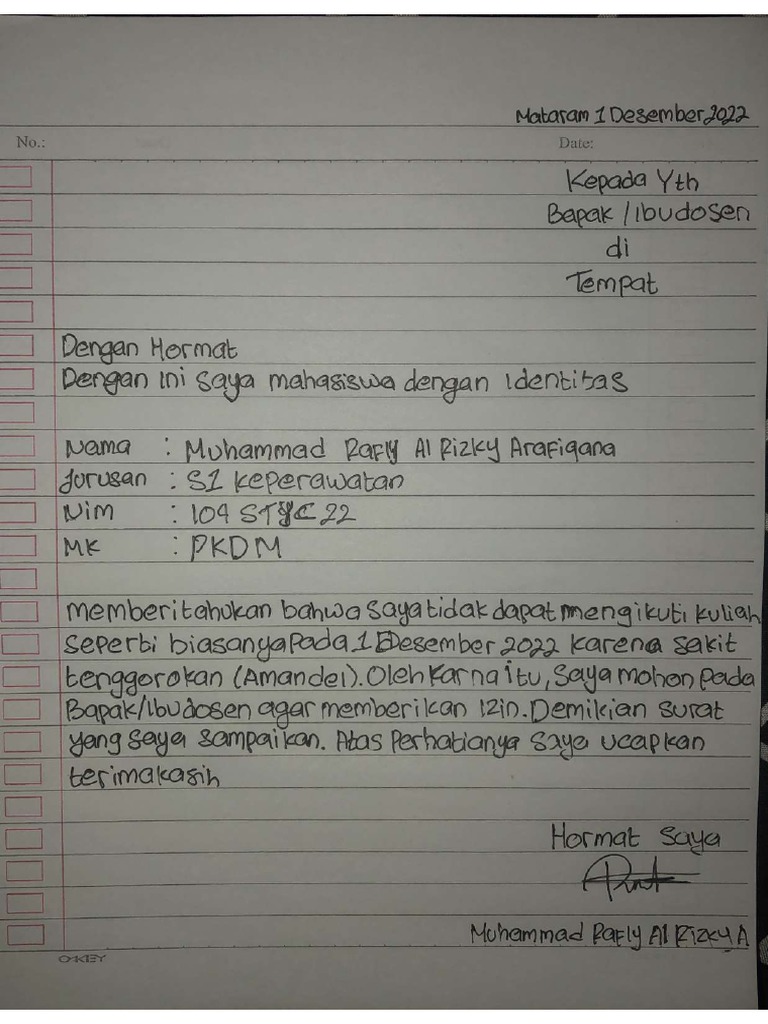 Mataram 1 Desember 2022
No.:
Date:
Kepada Yth
Bapak / Ibu dosen
di
Tempat
Dengan Hormat
Dengan Ini Saya mahasiswa dengan Identitas
Nama : Muhammad Rafly Al Rizky Arafiqana
Jurusan : S1 Keperawatan
Nim : 109 STYC 22
MK : PKDM
memberitahukan bahwa saya tidak dapat mengikuti kuliah
seperti biasanya Pada 1 Desember 2022 karena sakit
tenggorokan (Amandel). Oleh Karna itu, Saya mohon pada
Bapak/Ibu dosen agar memberikan Izin. Demikian surat
yang saya sampaikan. Atas Perhatianya saya ucapkan
terimakasih
Hormat Saya
Muhammad Rafly Al Rizky A
O-KEY